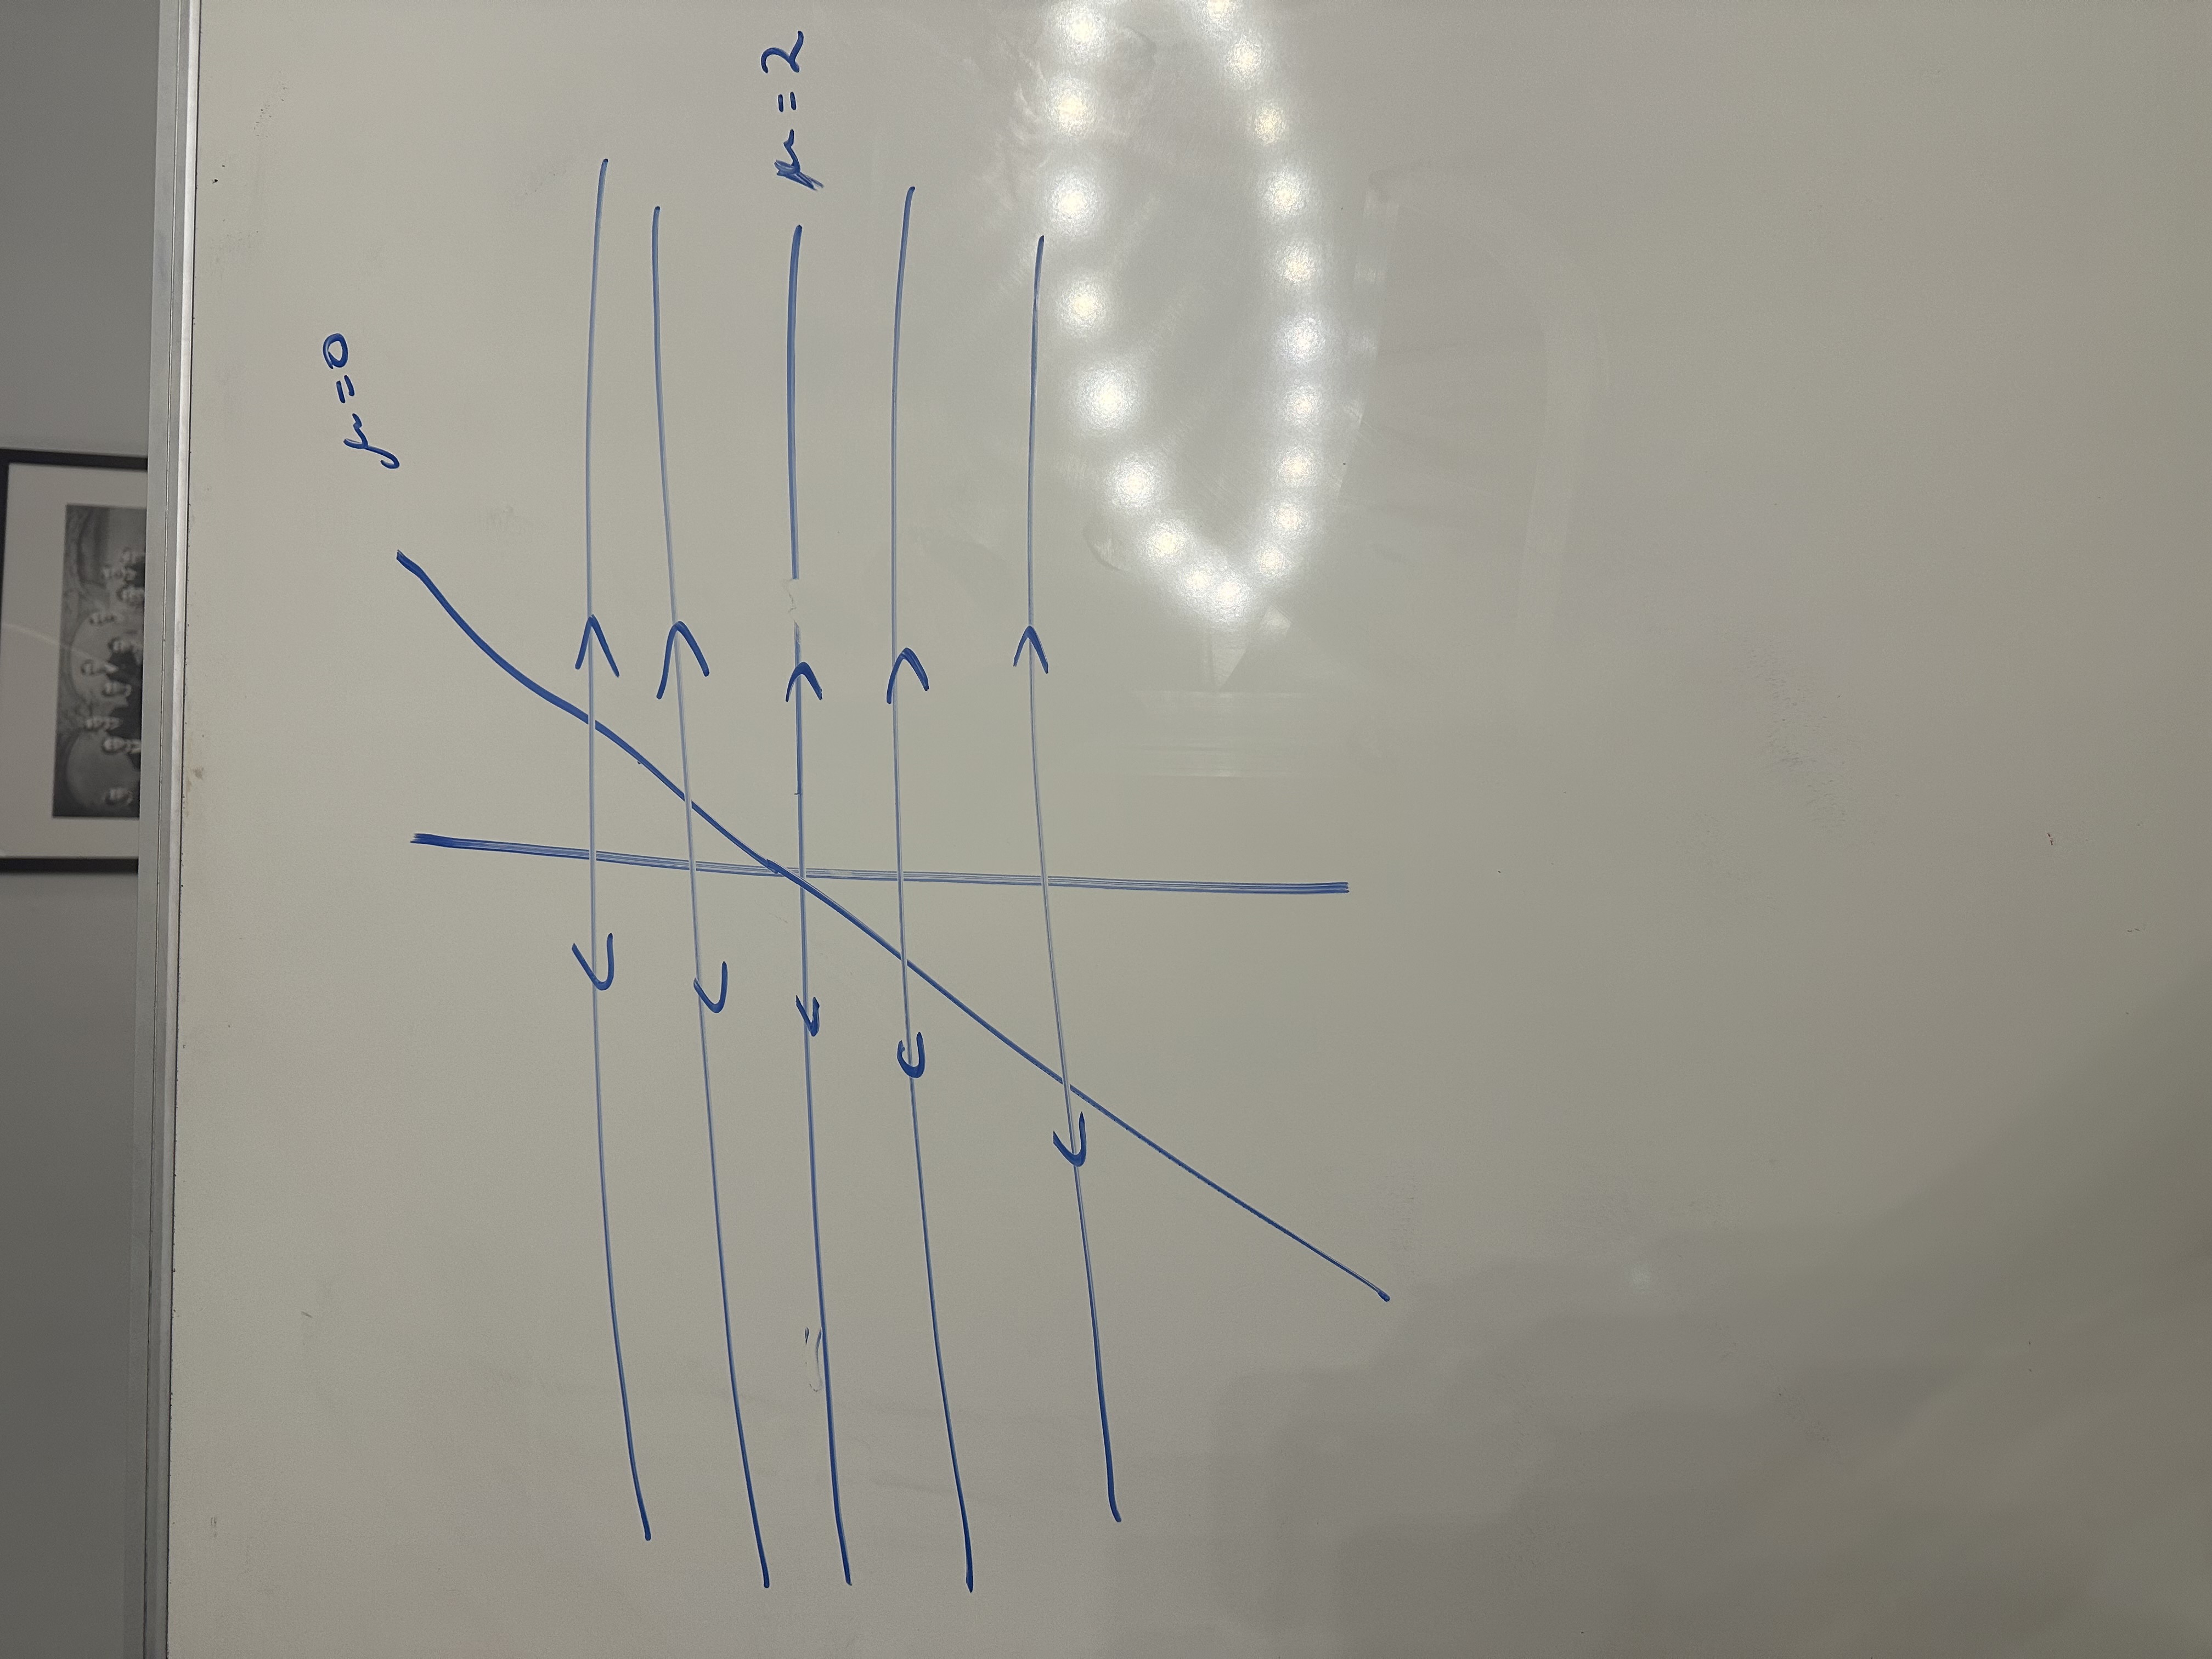 μ=0
μ=2